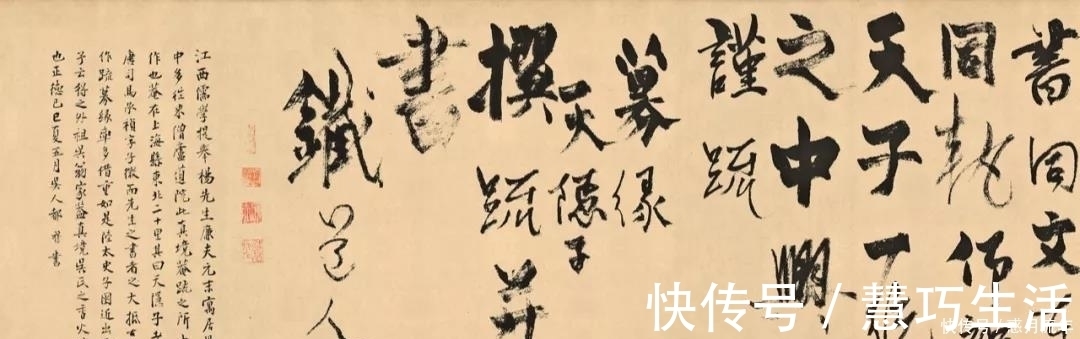 書同文
同軌
天子
之中興
謹疏
募緣
天隱子
撰疏并
書
鐵道人
江西儒學提舉楊先生廉夫元末寓居
中多從宋僧盧道院此真境菴疏之所
作也菴在上海縣東北二十里其曰天隱子
唐司馬承禎字子微而先生之書者之大抵
作疏募緣率多借重如是陸太史子固近出
子云得之外祖吳翁家蓋真境吳氏之香火
也正德己巳夏五月吳人都 書
快传号 / 慧巧生活
快传号